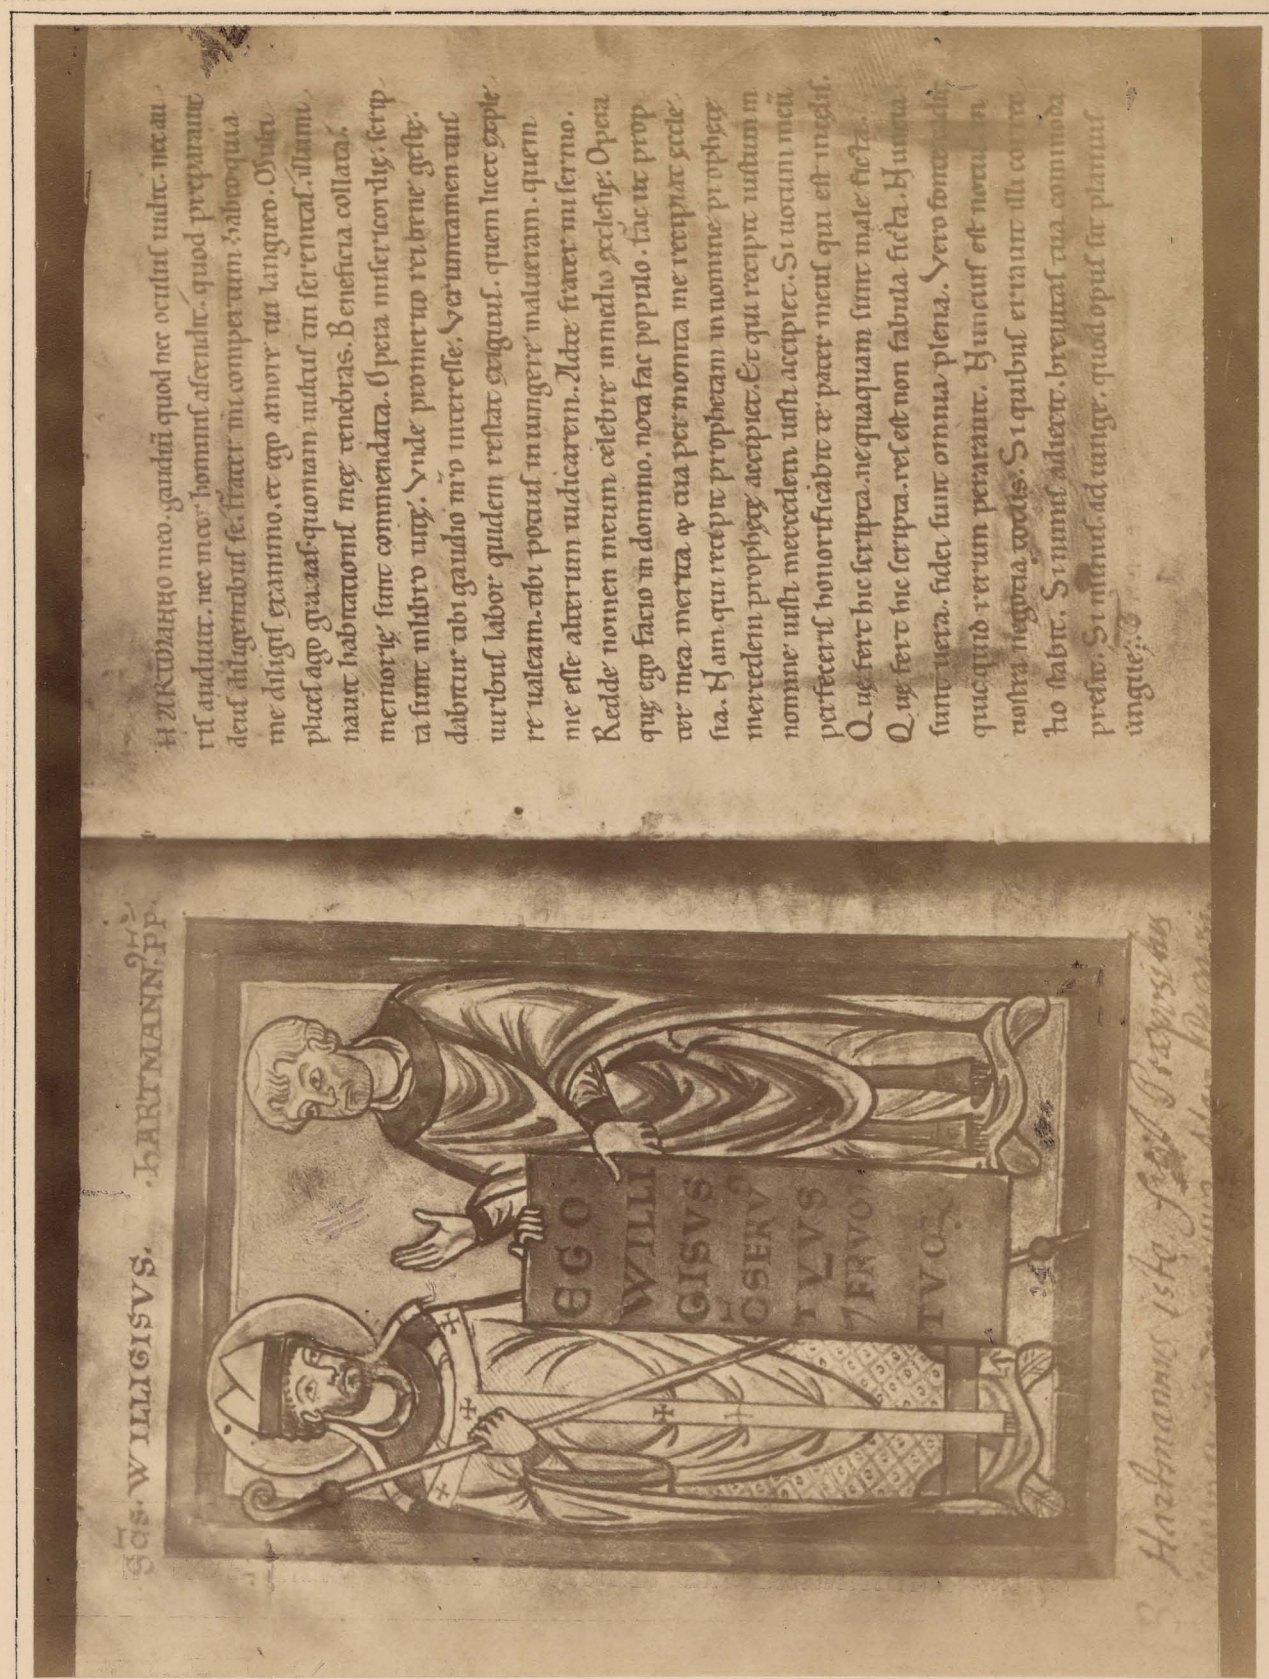 SC̄S. WILLIGISVS. .hARTMANN9. PP.
EGO
WILLI
GISVS
SERV
TVLVS
FRVO
TVO
Hartmannus iste
HARTMANNO meo. gaudiū quod nec oculus uidit. nec au
ris audiuit. nec in cor hominis ascendit. quod preparauit
deus diligentibus se. frater mi compertum. habeo qua
me diligis ex animo. et ego amore tui langueo. Osului
plices ago gratias. quoniam mutus tui serenitas. illumi
nauit habitationis meę tenebras. Beneficia collata.
memorię sunt commendata. Opera misericordię. scrip
ta sunt in libro uitę. Vnde pro merito rei bene gestę.
dabitur tibi gaudio n̄ro interesse. Veruntamen tuis
uiribus labor quidem restat exiguus. quem licet exple
re ualeam. tibi potius iniungere malueram. quem
me esse alterum iudicarem. Adte frater mi sermo.
Redde nomen meum celebre in medio ęcclesię. Opera
quę ego facio in domino. nota fac populo. fac ut prop
ter mea merita & tua per monita me recipiat eccle
sia. Nam qui recipit prophetam in nomine prophetę
mercedem prophetę accipiet. Et qui recipit iustum in
nomine iusti mercedem iusti accipiet. Si uotum meū
perfeceris honorificabit te pater meus qui est in celis.
Quę fert hic scripta. nequaquam sunt male ficta.
Quę fert hic scripta. res est non fabula ficta. Numera
sunt uera. fidei sunt omnia plena. Vero fonte
quicquid rerum perarauit. Huncuis est notu
nostra negotia totis. Si quibus errauit illi corre
tio stabit. Si nimis adiecit. breuitas tua commoda
presit. Si minus. ad iunge. quod opus sit planius
ungue.